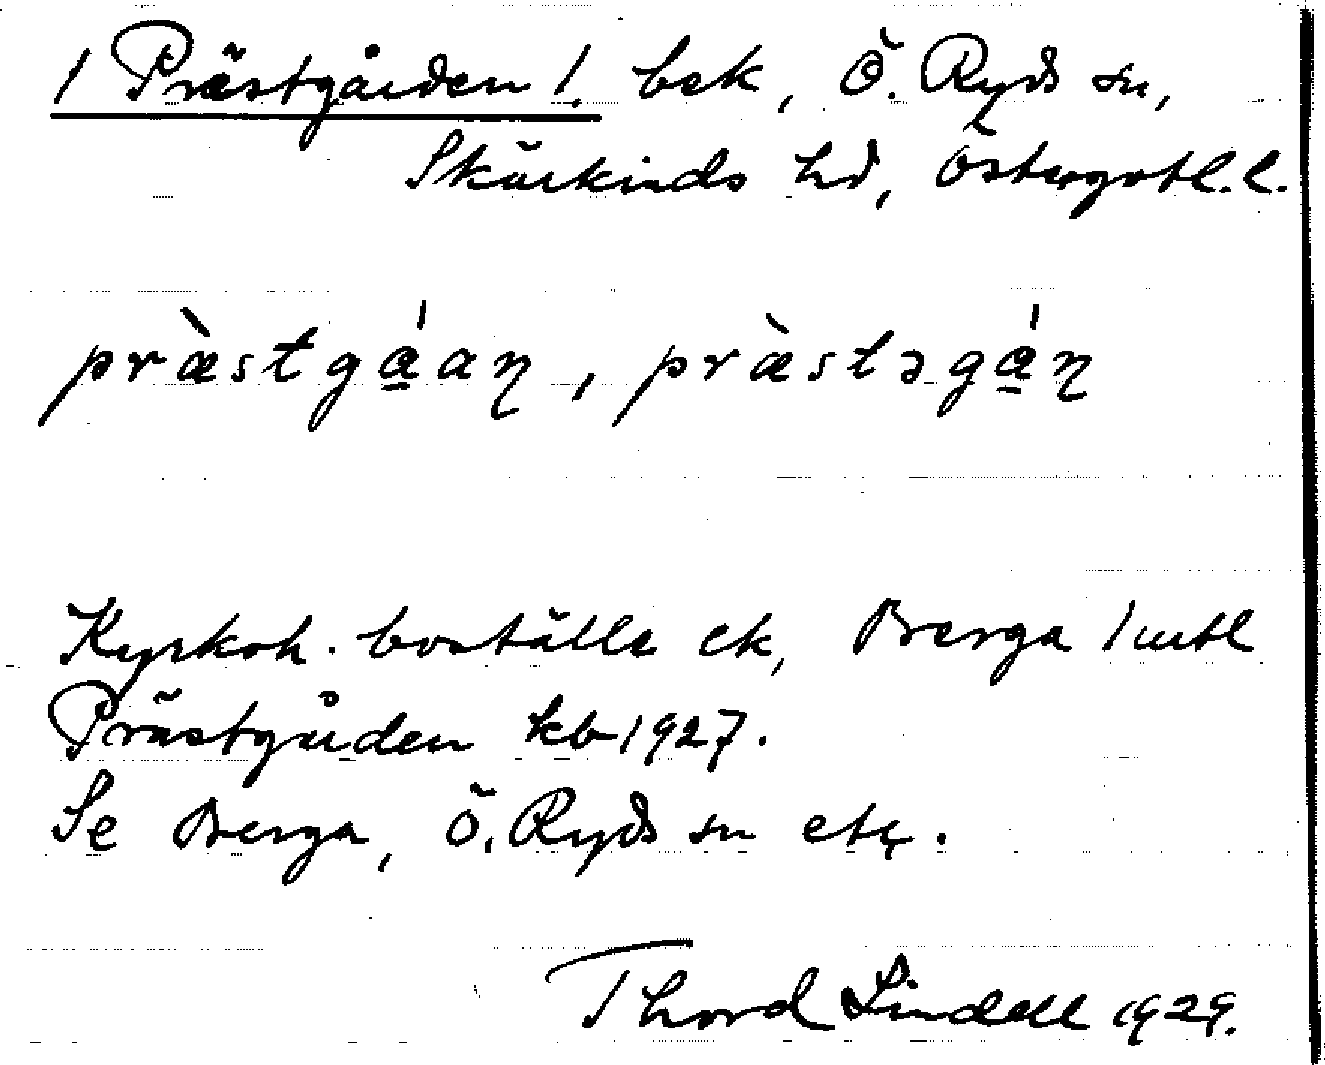 / Prästgården /. bsk, Ö. Ryds sn,
Skärkinds hd, Östergötl. l.
præ̀stgǻaɳ, præ̀stəgǻɳ
Kyrkoh. boställe ek, Berga 1 mtl
Prästgården kb 1927.
Se Berga, Ö. Ryds sn etc.
Thord Lindell 1929.